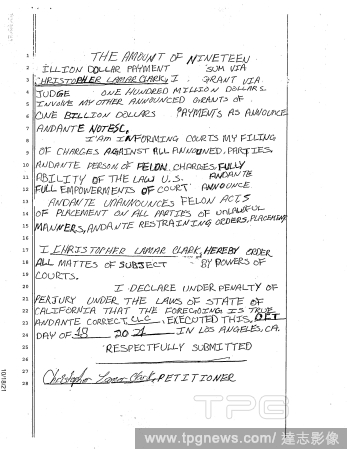 THE AMOUNT OF NINETEEN
ILLION DOLLAR PAYMENT SUM VIA
CHRISTOPHER LAMAR CLARK, I GRANT VIA
JUDGE ONE HUNDRED MILLION DOLLARS.
INVOLVE MY OTHER ANNOUNCED GRANTS OF
ONE BILLION DOLLARS PAYMENTS AS ANNOUNCE
ANDANTE NOTESC,
I'AM INFORMING COURTS MY FILING
OF CHARGES AGAINST ALL ANNOUNED, PARTIES,
ANDANTE PERSON OF FELON, CHARGES, FULLY
ABILITY OF THE LAW U.S. ANDANTE
FULL EMPOWERMENTS OF COURT ANNOUNCE
ANDANTE UNANNOUNCES FELON ACTS
OF PLACEMENT ON ALL PARTIES OF UNLAWFUL
MANNERS, ANDANTE RESTRAINING ORDERS, PLACEMENT
I CHRISTOPHER LAMAR CLARK, HEREBY ORDER
ALL MATTES OF SUBJECT BY POWERS OF
COURTS.
I DECLARE UNDER PENALTY OF
PERJURY UNDER THE LAWS OF STATE OF
CALIFORNIA THAT THE FOREGOING IS TRUE
ANDANTE CORRECT, CLC, EXECUTED THIS, OCT
DAY OF 18 2021 IN LOS ANGELES, CA.
RESPECTFULLY SUBMITTED
Christopher Lamar Clark, PETITIONER
10/18/21
TPG
www.tpgnews.com / 達志影像